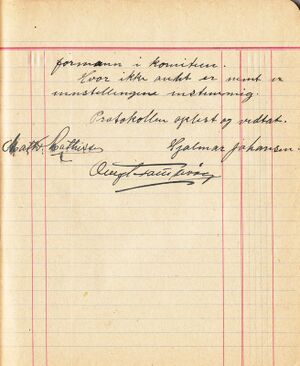 formann i komiteen.
Hvor ikke andet er nevnt er
innstellingene enstemmig.
Protokollen oplest og vedtat.
Mathv. Mathisen Hjalmar Johansen.